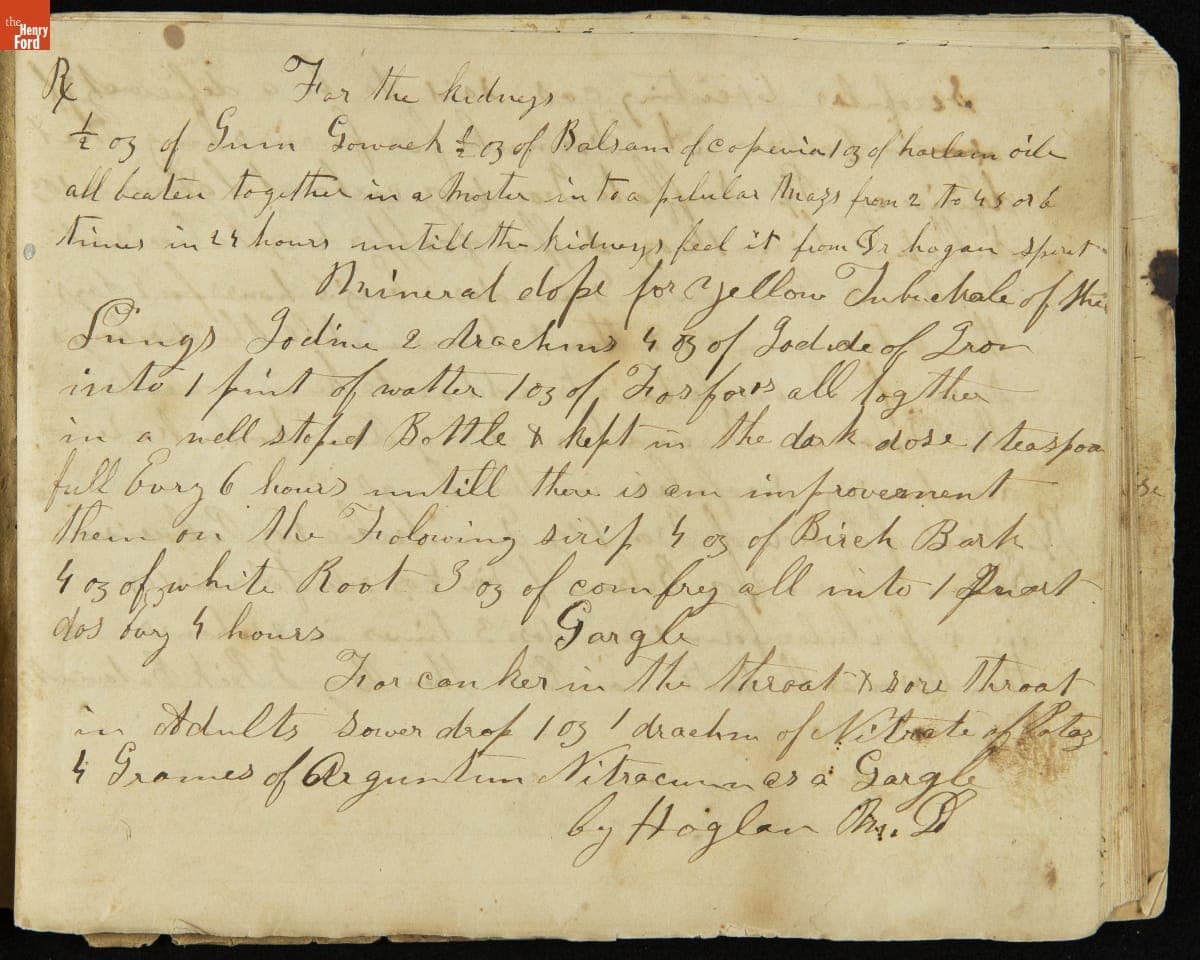 the
Henry
Ford
℞ For the kidneys
½ oz of Gum Gowack ½ oz of Balsam of copevia 1 oz of harlam oile
all beaten together in a morter into a pilular Mazs from 2 to 4 5 or 6
times in 24 hours untill the kidneys feel it from Dr hogan spirit
Mineral dope for Yellow Tubuckale of the
Lungs Iodine 2 drachms 4 oz of Iodide of Iron
into 1 pint of watter 1 oz of Fosforis all togther
in a well stoped Bottle & kept in the dark dose 1 teaspoon
full Evry 6 hours untill there is am improvement
them on the Folowing sirip 4 oz of Birch Bark
4 oz of white Root 3 oz of comfrey all into 1 Quart
dos evry 4 hours Gargle
For canker in the throat & sore throat
in Adults sower drop 1 oz 1 drachm of Nitrate of Potas
4 Grames of Arguntum Nitracum as a Gargle
by Hoglan M. D